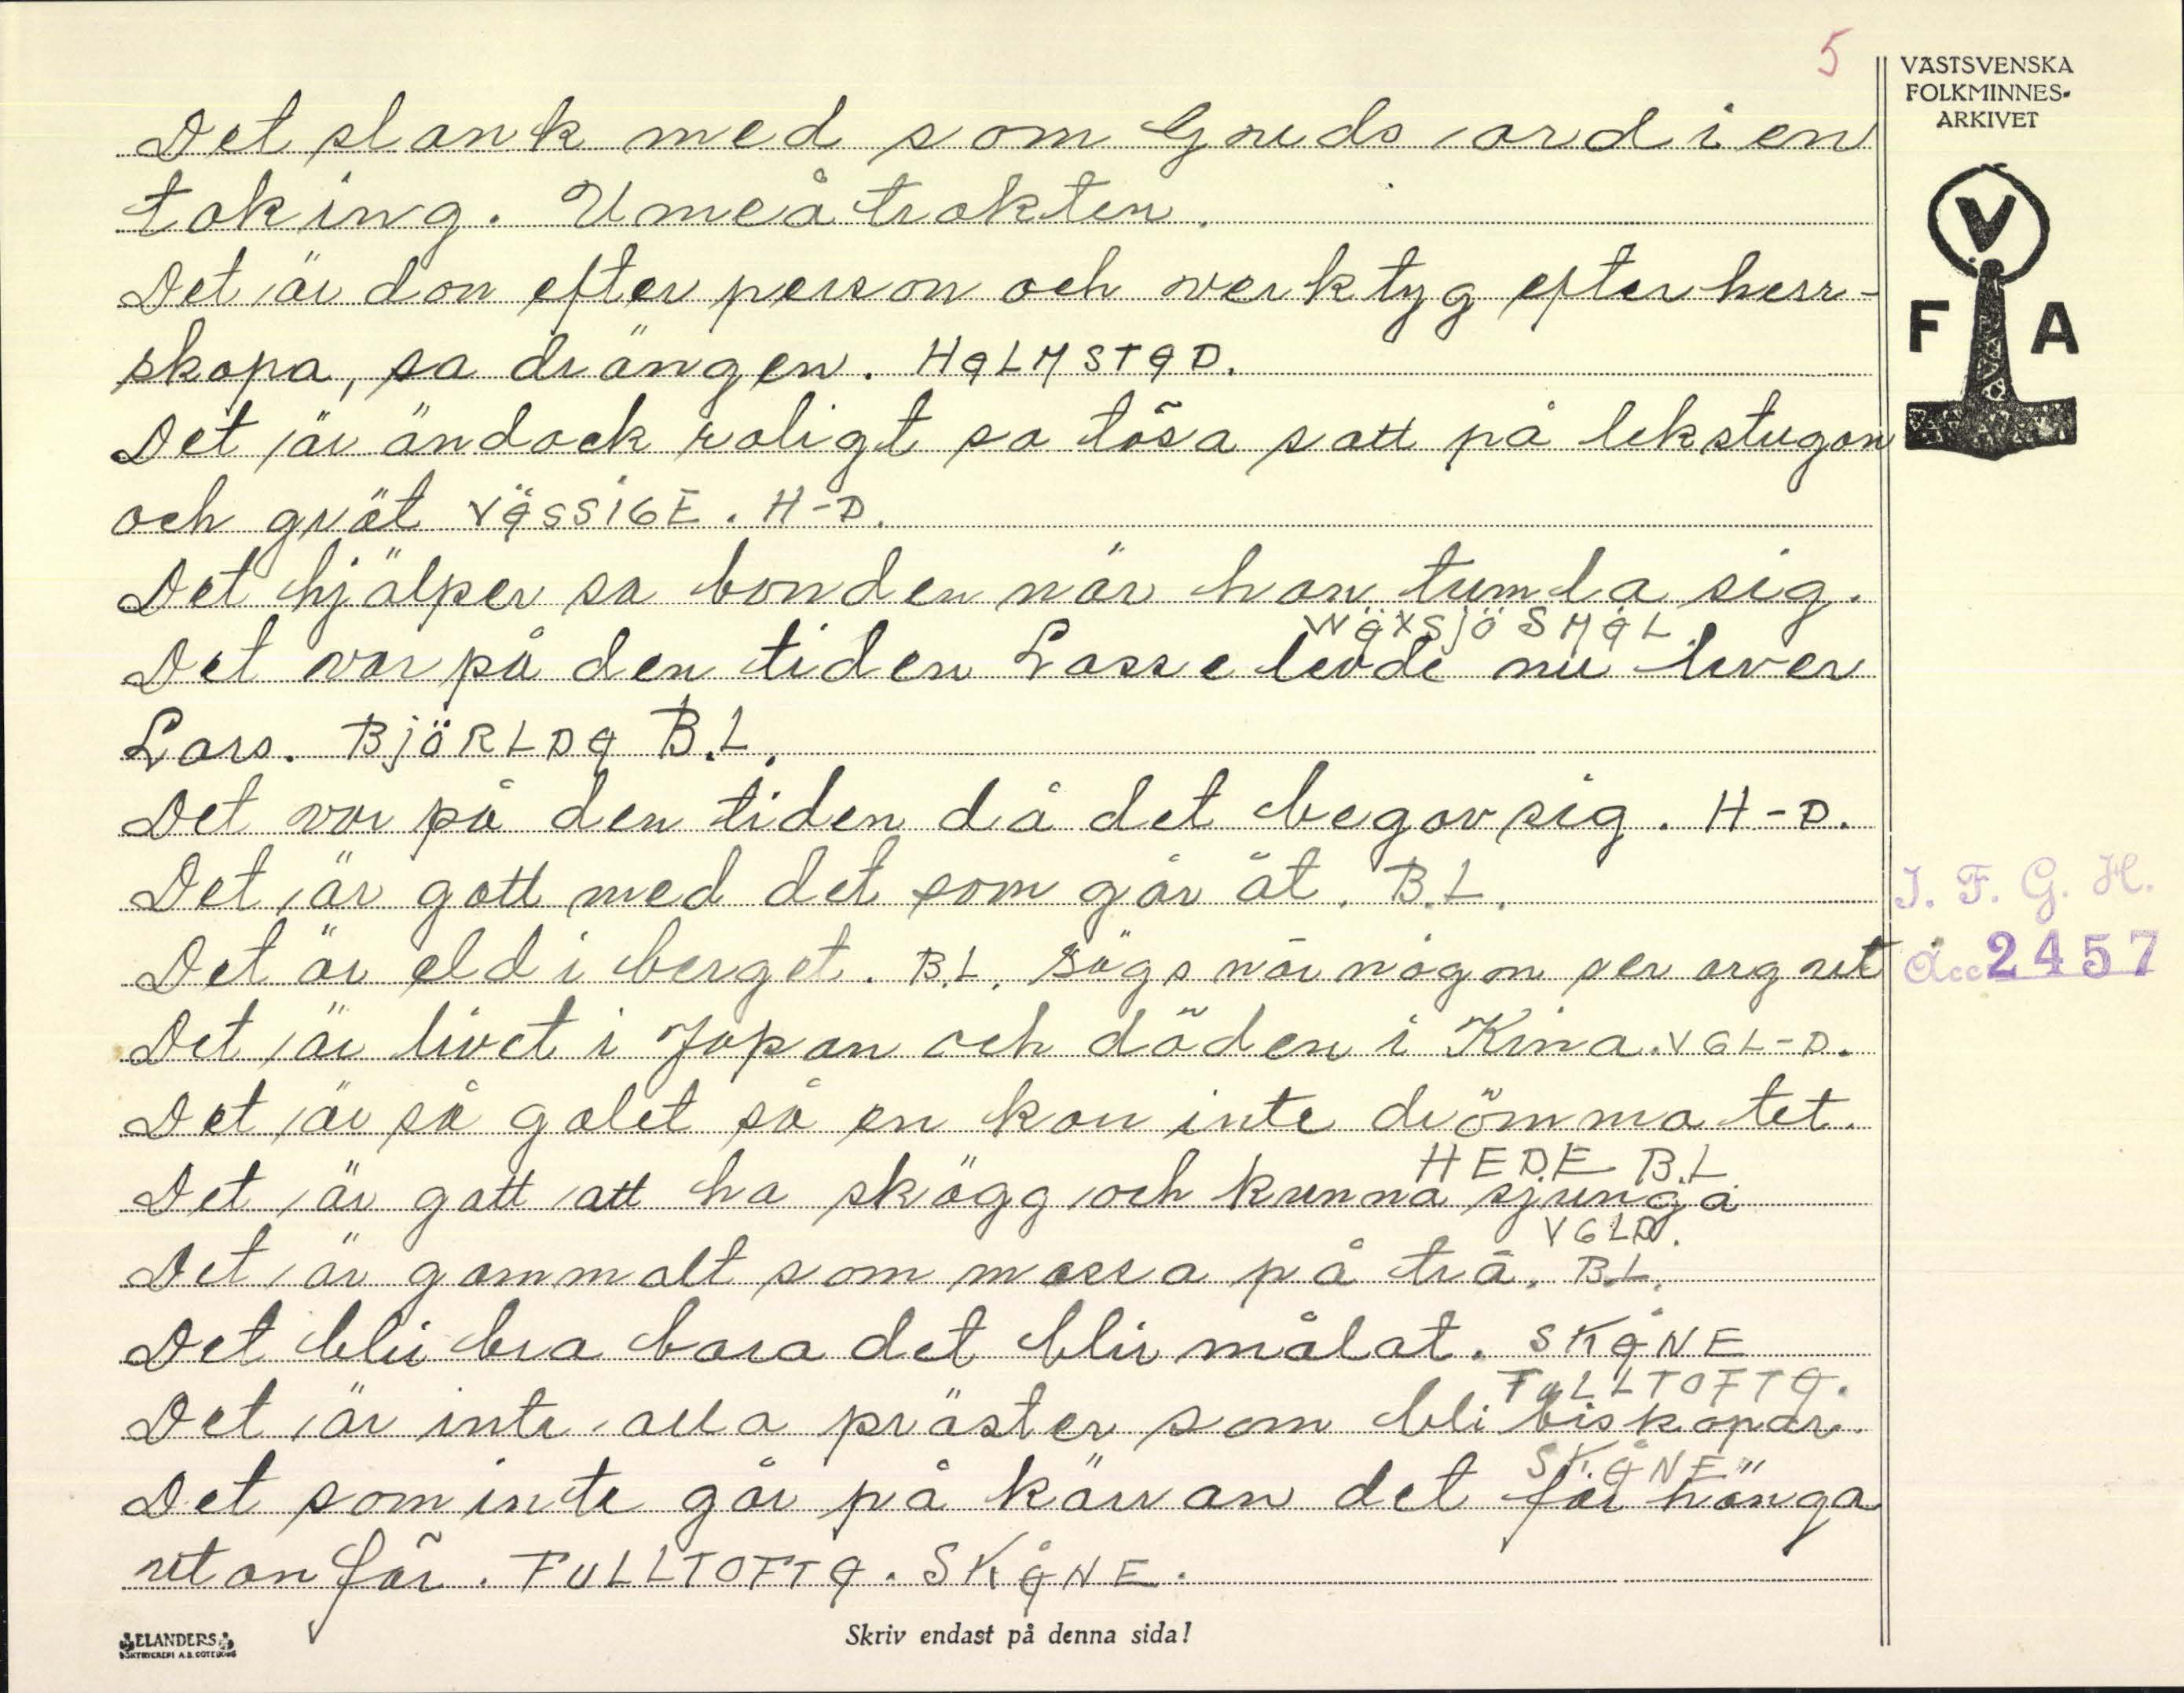 5
VÄSTSVENSKA
FOLKMINNES-
ARKIVET
V
F A
Det slank med som Guds ord i en
toking. Umeåtrakten.
Det är don efter person och verktyg efter herr-
skapa, sa drängen. HALMSTAD.
Det är ändock roligt sa tösa satt på lekstugan
och grät VÄSSIGE. H-D.
Det hjälper sa bonden när han tumla sig.
WÄXSJÖ SMÅL.
Det var på den tiden Lasse levde nu lever
Lars. BJÖRLDA B.L.
Det var på den tiden då det begav sig. H-D.
Det är gott med det som går åt. B.L.
I. F. G. H.
Det är eld i berget. B.L. Sägs när någon ser arg ut
Acc 2457
Det är livet i Japan och döden i Kina. VGL-D.
Det är så galet så en kan inte drömma tet.
HEDE B.L
Det är gott att ha skägg och kunna sjunga
VGLD.
Det är gammalt som mossa på trä. B.L.
Det blir bra bara det blir målat. SKÅNE
FULLTOFTA.
Det är inte alla präster som bli biskopar.
SKÅNE
Det som inte går på kärran det får hänga
utanför. FULLTOFTA. SKÅNE.
ELANDERS
BOKTRYCKERI A.B. GÖTEBORG
Skriv endast på denna sida!